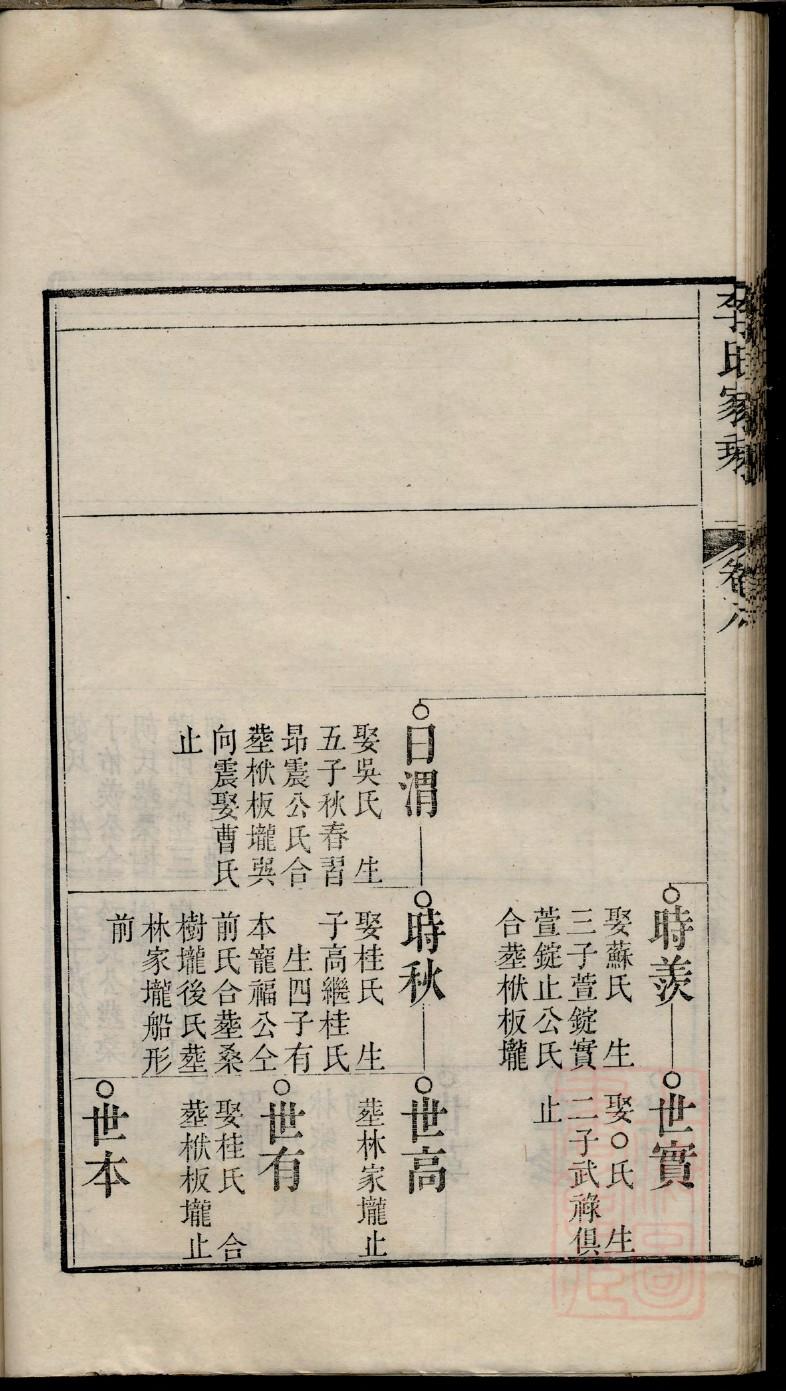 李氏家乘
卷八
時羨
娶蘇氏 生
三子萱錠實
萱錠止公氏
合塟栿板壠
世實
娶○氏 生
二子武祿俱
止
日渭
娶吳氏 生
五子秋春習
昻震公氏合
塟栿板壠吳
向震娶曹氏
止
時秋
娶桂氏 生
子高繼桂氏
生四子有
本寵福公仝
前氏合塟桑
樹壠後氏塟
林家壠船形
前
世高
塟林家壠止
世有
娶桂氏 合
塟栿板壠止
世本